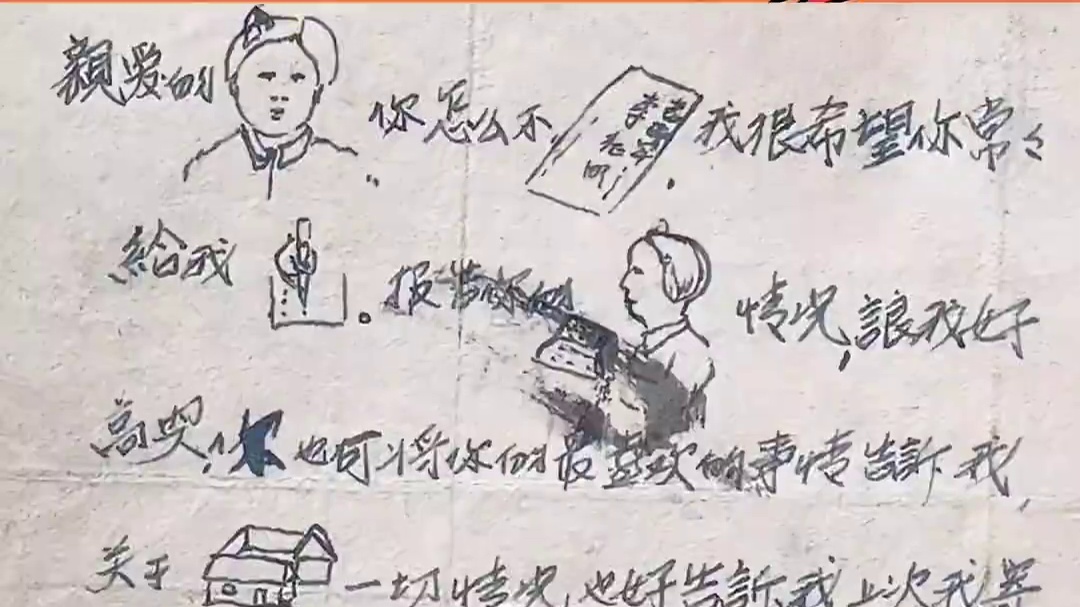 親爱的 你怎么不 我很希望你常々
給我 。报告你的 情况,讓我好
高兴,你也可将你的最喜欢的事情告訴我,
关于 一切情况,也好告訴我 上次我